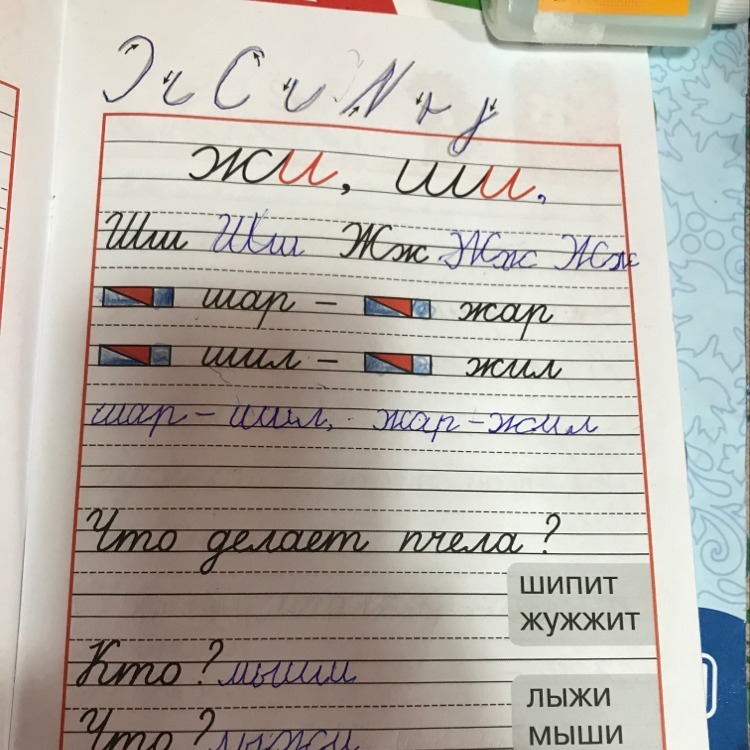 жи, ши,
Шш Шш Жж Жж Жж
шар – жар
шил – жил
шар – шил, жар – жил
Что делает пчела?
шипит
жужжит
Кто? мыши
лыжи
Что? лыжи
мыши